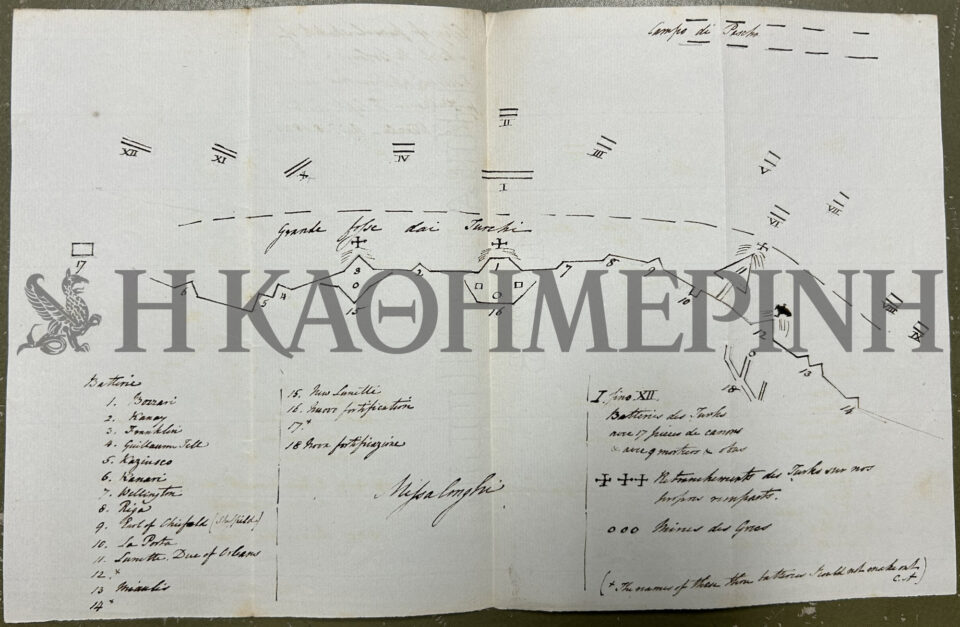 Campo di
XII
XI
IV
II
I
III
V
VI
VII
VIII
IX
Grande fosse dai Turchi
17
6
5
4
3
2
1
7
8
9
10
11
12
13
14
15
16
18
Η ΚΑΘΗΜΕΡΙΝΗ
Batterie
1. Bozzari
2. Kanay
3. Franklin
4. Guillaume Tell
5. Kaziusco
6. Kanari
7. Wellington
8. Riga
9. Earl of Chiefeld (Sheffield)
10. La Porta
11. Lunette. Duc of Orleans
12 +
13 Miaulis
14 +
15. New Lunette
16. Nuovo fortification
17. +
18 Nova fortificazione
Missalonghi
I fino XII.
Batteries des Turks
avec 17 pièces de canons
avec 9 mortiers
Retranchements des Turks sur nos
propres remparts.
ooo Mines des Grecs
(+ The names of these three batteries I could not make out